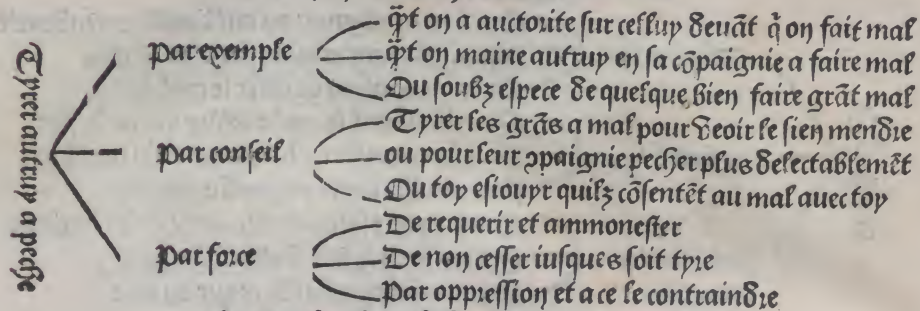 Tyrer autruy a peche
Par exemple
q̄t on a auctorite sur cestuy deuāt q̄ on fait mal
q̄t on maine autruy en sa cōpaignie a faire mal
Ou soubz espece de quelque bien faire grāt mal
Par conseil
Tyrer les grās a mal pour veoir le sien mendre
ou pour leur ꝯpaignie pecher plus delectablemēt
Ou toy esiouyr quilz cōsentēt au mal auec toy
Par force
De requerir et ammonester
De non cesser iusques soit tyre
Par oppression et a ce le contraindre